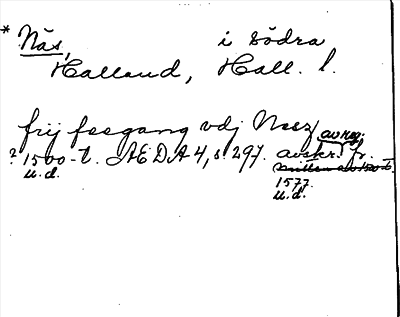 * Näs, i södra
Halland, Hall. l.
frij feegang vdj Neez
av reg.
? 1500-t. ÆDA 4, s 297. avskr. fr.
u.d.
1577.
u.d.